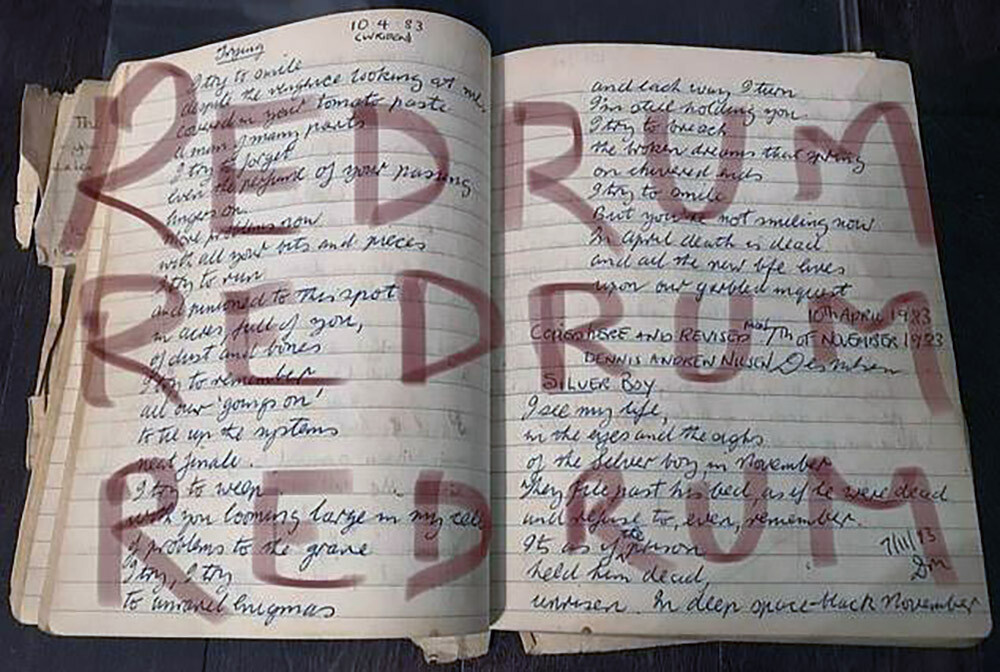 Trying
10.4.83
I try to smile
despite the vengeance looking at me,
covered in your tomato paste
a man of many parts
I try to forget
even the perfume of your passing
lingers on.
more problems now
with all your bits and pieces
I try to run
and pinioned to this spot
in acres, full of you,
of dust and bones
I try to remember
all our 'goings on'
to tie up the systems
neat finale.
I try to weep
with you looming large in my cell
of problems to the grave
I try, I try
to unravel enigmas
and each way I turn
I'm still holding you.
I try to
the broken dreams that spring
on ends
I try to smile
But you're not smiling now
In April death is dead
and all the new life lives
upon our garden
10TH APRIL 1983
COPIED HERE AND REVISED 7TH OF NOVEMBER 1983
DENNIS ANDREW NILSEN
SILVER BOY
I see my life,
in the eyes and the sighs
of the silver boy in November
They file past his bed, as if he were dead
and refuse to, even, remember.
Its as if the prison
held him dead,
unrisen. In deep space-black November
7/11/83
RED RUM
RED RUM
RED RUM